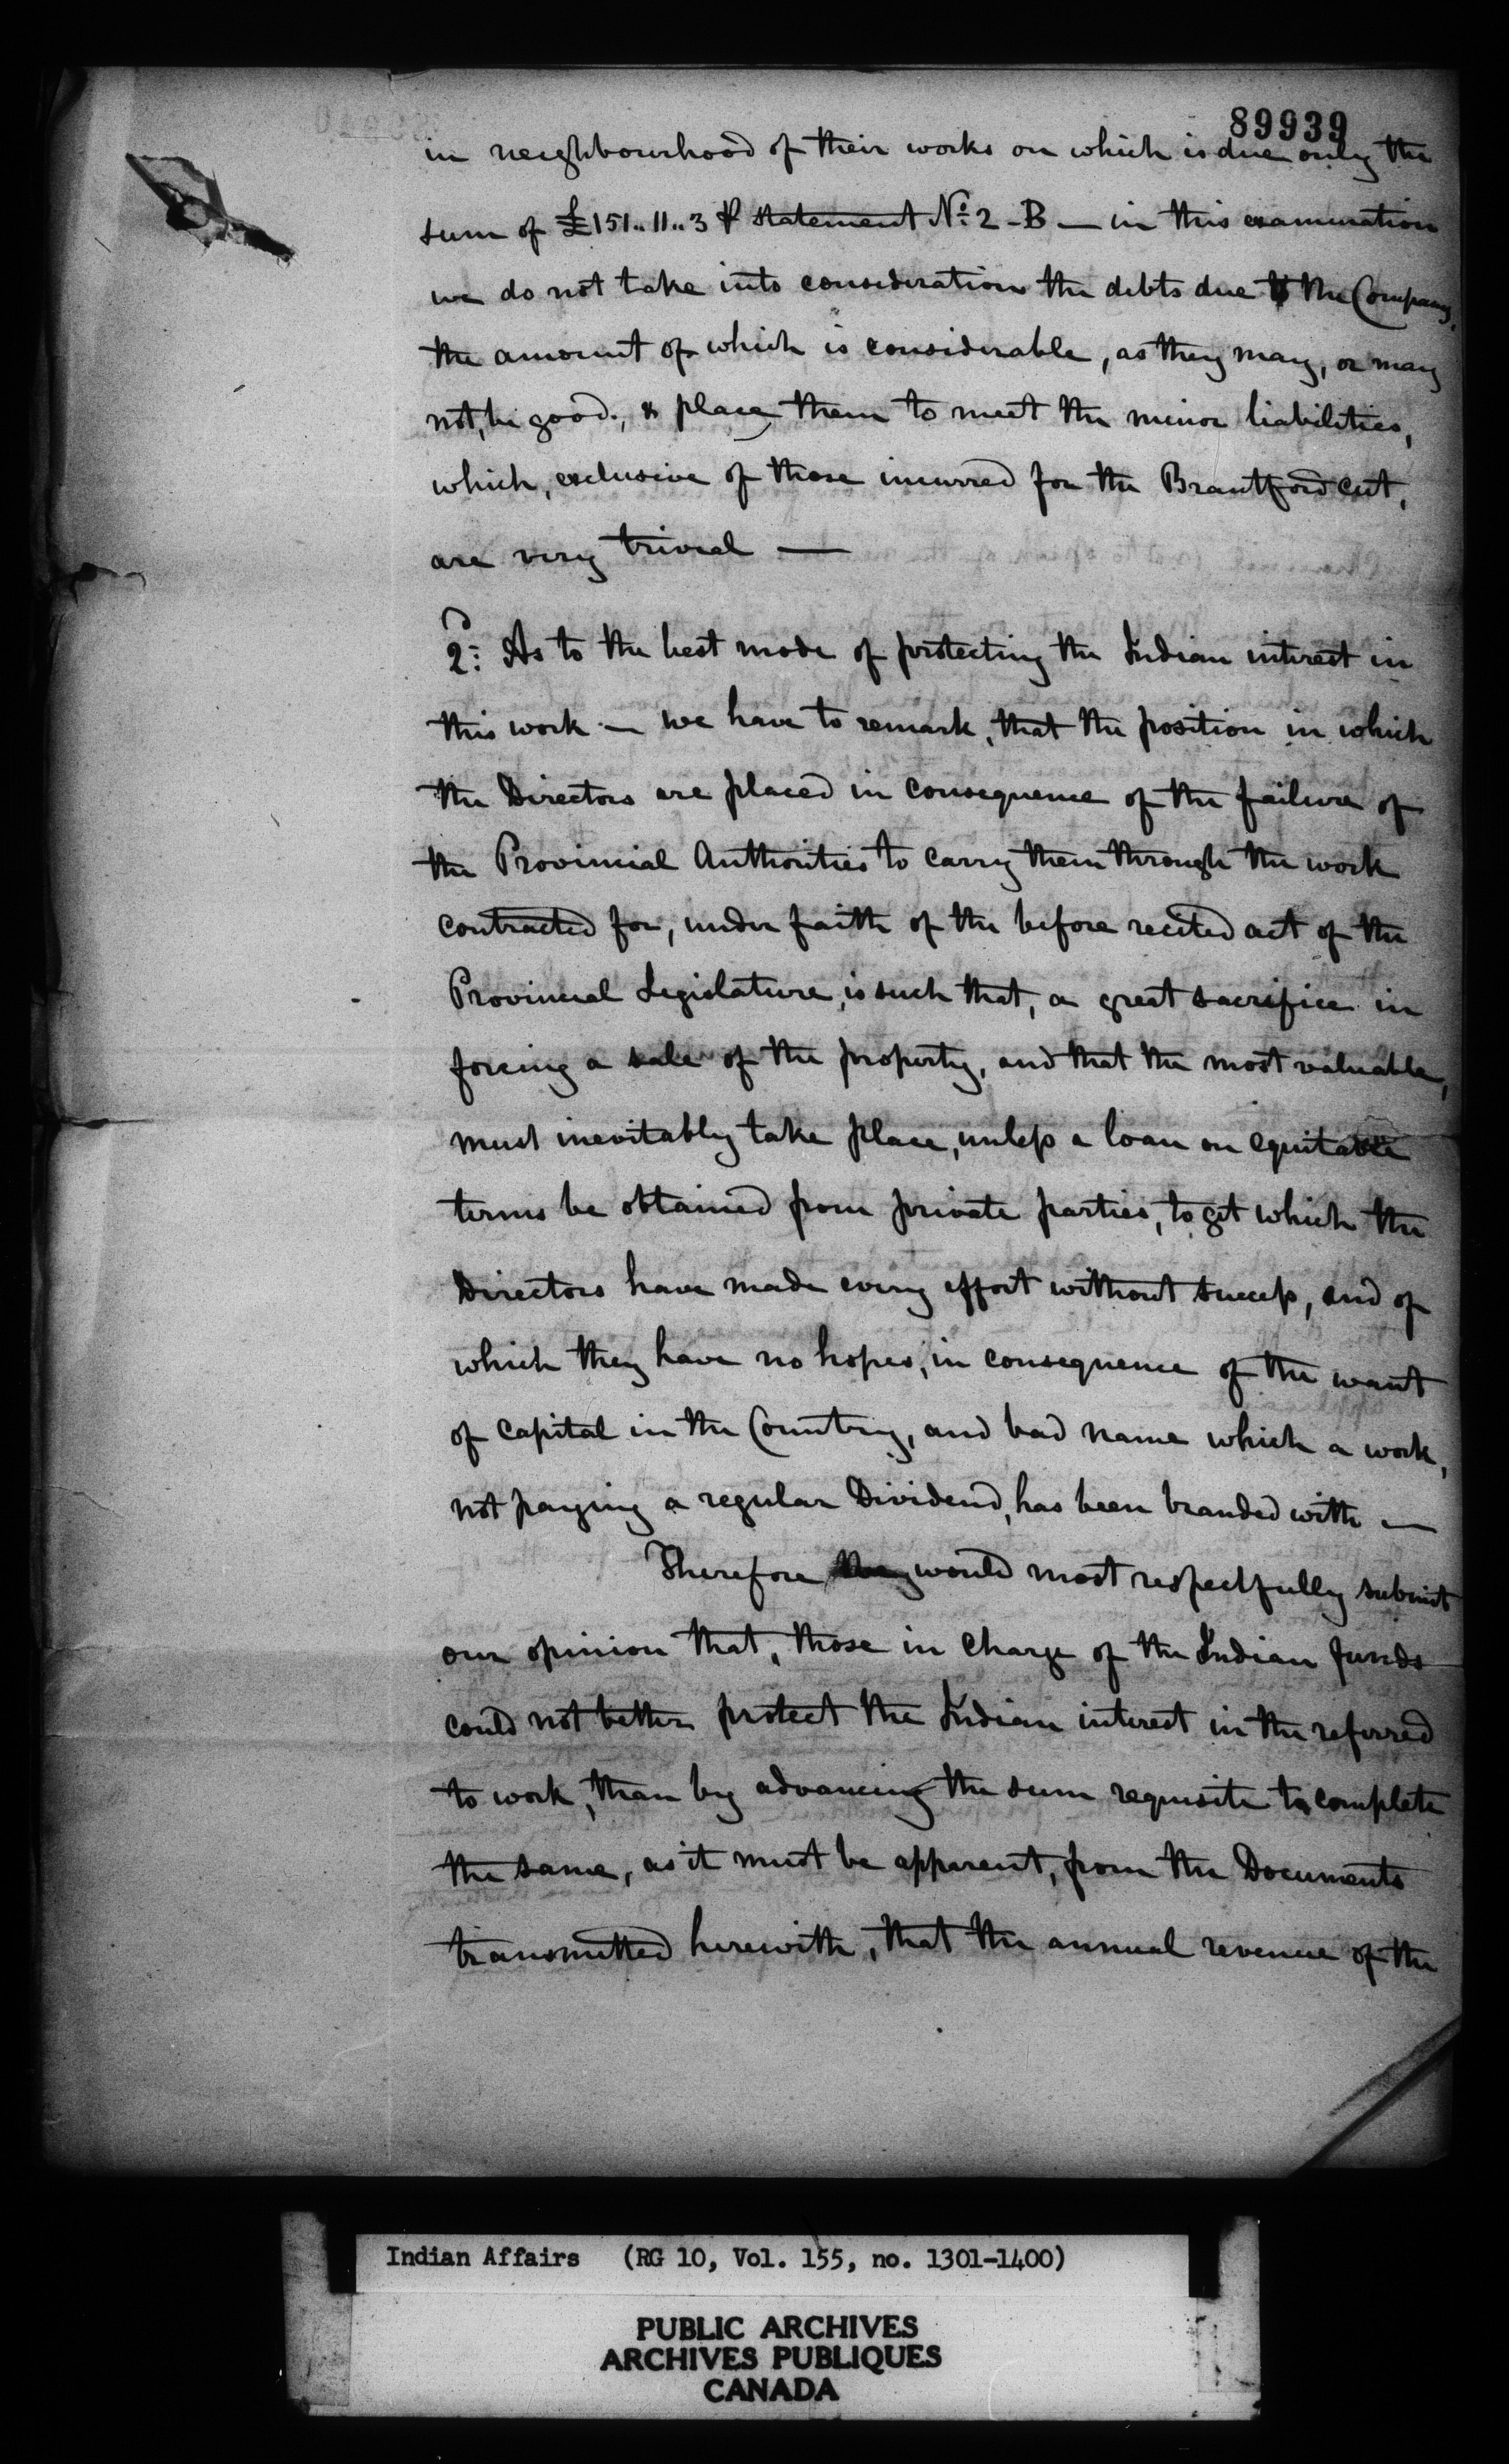 89939
in neighbourhood of their works on which is due only the
sum of £151.. 11.. 3 ⅌ statement No. 2 - B — in this examination
we do not take into consideration the debts due to the Company,
the amount of which is considerable, as they may, or may
not, be good., & place them to meet the minor liabilities,
which, exclusive of those incurred for the Brantford cut,
are very trivial —
2: As to the best mode of protecting the Indian interest in
this work — we have to remark, that the position in which
the Directors are placed in consequence of the failure of
the Provincial Authorities to carry them through the work
contracted for, under faith of the before recited act of the
Provincial Legislature, is such that, a great sacrifice in
forcing a sale of the property, and that the most valuable,
must inevitably take place, unless a loan on equitable
terms be obtained from private parties, to get which the
Directors have made every effort without success, and of
which they have no hopes, in consequence of the want
of capital in the Country, and bad name which a work,
not paying a regular Dividend, has been branded with —
Therefore would most respectfully submit
our opinion that, those in charge of the Indian funds
could not better protect the Indian interest in the referred
to work, than by advancing the sum requisite to complete
the same, as it must be apparent, from the Documents
transmitted herewith, that the annual revenue of the
Indian Affairs (RG 10, Vol. 155, no. 1301-1400)
PUBLIC ARCHIVES
ARCHIVES PUBLIQUES
CANADA